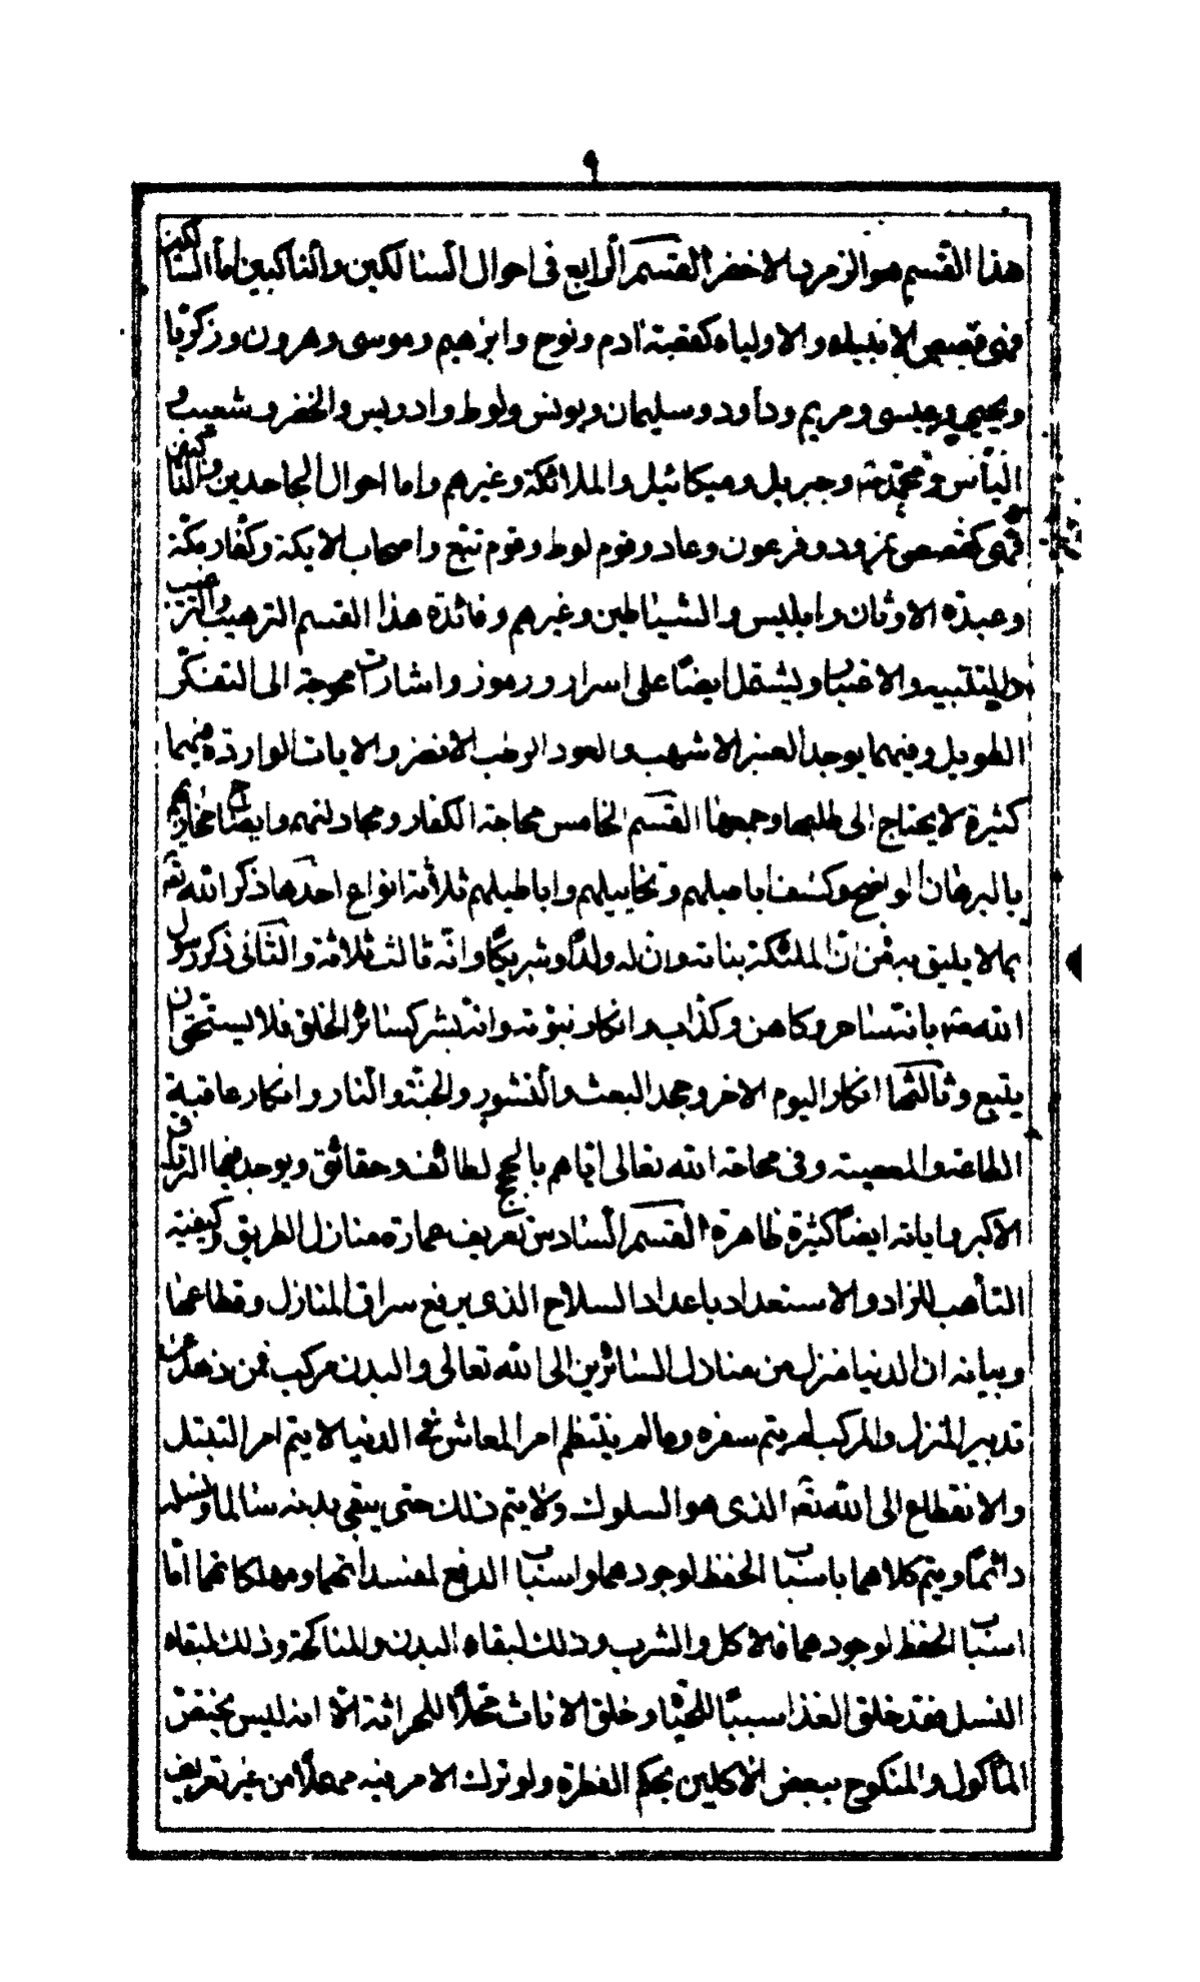 ٩
هذا القسم هو الزمرد الاخضر القسم الرابع فى احوال السالكين والناكبين اما السالكين
فهى قصص الانبياء والاولياء كقصة ادم ونوح وابرهيم وموسى وهرون وزكريا
ويحيى وعيسى ومريم وداود وسليمان ويونس ولوط وادريس والخضر وشعيب و
الياس ومحمد وجبريل وميكائيل والملائكة وغيرهم واما احوال الجاحدين والناكبين
فهى كقصص نمرود وفرعون وعاد وقوم لوط وقوم تبّع واصحاب الايكة وكفار مكة
وعبدة الاوثان وابليس والشياطين وغيرهم وفائدة هذا القسم الترهيب والترغيب
والتنبيه والاعتبار ويشتمل ايضاً على اسرار ورموز واشارات محوجة الى التفكّر
الطويل وفيهما يوجد العنبر الاشهب والعود الرطب الانضر والايات الواردة فيهما
كثيرة لا يحتاج الى طلبها وجمعها القسم الخامس محاجة الكفار ومجادلتهم وايضاح مخازيهم
بالبرهان الواضح وكشف اباطيلهم وتخاييلهم واباطيلهم ثلاثة انواع احدها ذكر الله تعـ
بما لا يليق به من انّ الملئكة بناته وان له ولداً وشريكاً وانّه ثالث ثلاثة والثانى ذكر رسول
الله بانه ساحر وكاهن وكذاب وانكار نبوته وانه بشر كسائر الخلق فلا يستحق ان
يتبع وثالثها انكار اليوم الاخر وجحد البعث والنشور والجنّة والنار وانكار عاقبة
الطاعة والمعصية وفى محاجة الله تعالى ايّاهم بالحجج لطائف وحقائق ويوجد فيها الترياق
الاكبر واياته ايضاً كثيرة ظاهرة القسم السادس تعريف عمارة منازل الطريق وكيفية
التأهب للزاد والاستعداد باعداد السلاح الذى يرفع سراق المنازل وقطاعها
وبيانه ان الدنيا منزل من منازل السائرين الى الله تعالى والبدن مركب فمن ذهل عن
تدبير المنزل والمركب لم يتم سفره وما لم ينتظم امر المعاش فى الدنيا لا يتم امر التبتل
والانقطاع الى الله تعـ الذى هو السلوك ولا يتم ذلك حتى يبقى بدنه سالما ونسله
دائماً ويتم كلاهما باسباب الحفظ لوجودهما واسباب الدفع لمفسداتهما ومهلكاتهما امّا
اسباب الحفظ لوجودهما فالاكل والشرب وذلك لبقاء البدن والمناكحة وذلك لبقاء
النسل فقد خلق الغذا سبباً للحياة وخلق الاناث محلاً للحراثة الّا انه ليس يختص
المأكول والمنكوح ببعض الاكلين بحكم الفطرة ولو ترك الامر فيه مهملاً من غير تعريف